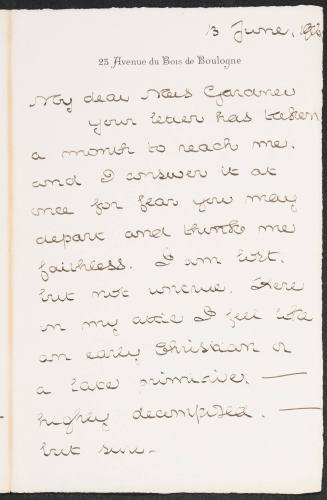 13 June, 1906
23 Avenue du Bois de Boulogne
My dear Mrs Gardner
Your letter has taken
a month to reach me.
and I answer it at
once for fear you may
depart and think me
faithless. I am lost.
but not untrue. Here
in my attic I feel like
an early Christian or
a late primitive. —
highly decomposed. —
but sure -